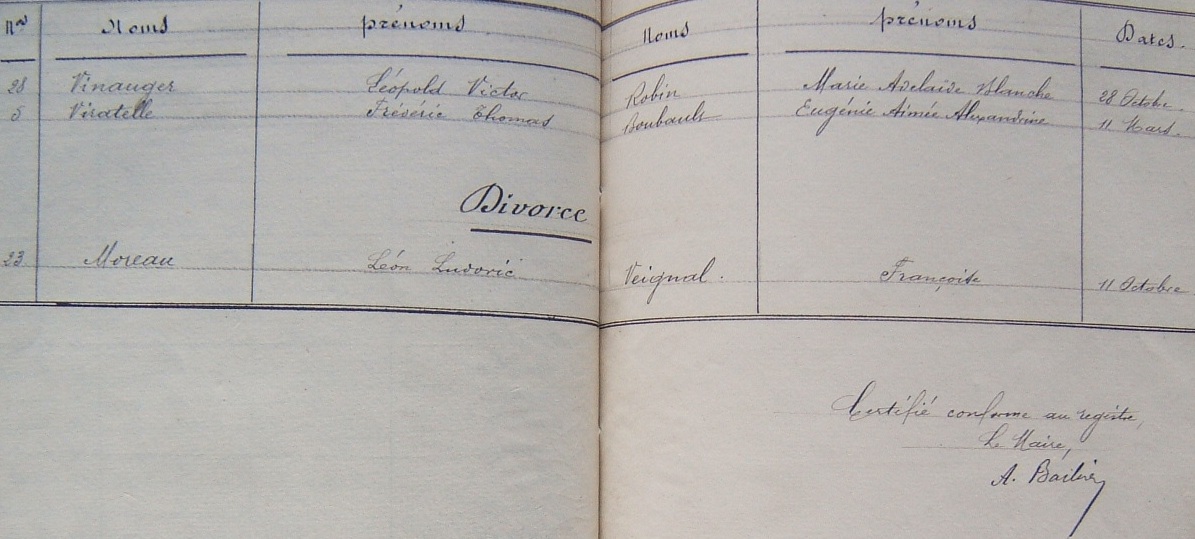 Nos Noms prénoms Noms prénoms Dates.
28 Vinauger Léopold Victor Robin Marie Adelaïde Blanche 28 Octobre
5 Viratelle Frédéric Thomas Boubault Eugénie Aimée Alexandrine 11 Mars.
Divorce
23 Moreau Léon Ludovic Veignal. Françoise 11 Octobre
Certifié conforme au registre,
Le Maire,
A.